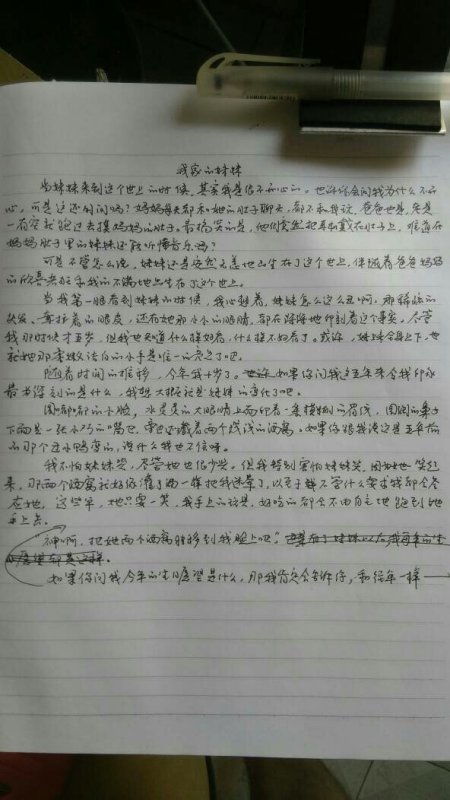 我家的妹妹
当妹妹来到这个世上的时候，其实我是很不开心的。也许你会问我为什么不开
心，可是这还用问吗？妈妈每天都和她的肚子聊天，都不和我说，爸爸也是，老是
一有空就跑过去摸妈妈的肚子。最搞笑的是，他们竟然把耳机戴在肚子上，难道在
妈妈肚子里的妹妹还能听懂音乐吗？
可是不管怎么说，妹妹还是安然无恙地出生在了这个世上，伴随着爸爸妈妈
的欣喜若狂和我的不满地出生在了这个世上。
当我第一眼看到妹妹的时候，我心想着，妹妹怎么这么丑啊，那稀疏的
头发，耷拉着的眼皮，还有她那小小的眼睛，都在深深地印刻着这个事实。尽管
我那时候才五岁，但我也知道什么样好看，什么样不好看了。或许，妹妹全身上下，也
就她那李嫩洁白的小手是唯一的亮点了吧。
随着时间的推移，今年我十岁了。如果你问我这五年来令我印象
最为深刻的是什么，我想大概就是妹妹的变化了吧。
圆嘟嘟的小脸，水灵灵的大眼睛上面印着一条模糊的眉线，圆圆的鼻子
下面是一张小巧的嘴巴，旁边还藏着两个浅浅的酒窝。如果你跟我说这是五年前
的那个丑小鸭变的，说什么我也不信呀。
我不怕妹妹哭，尽管她也很少哭。但我特别害怕妹妹笑，因为她一笑起
来，那两个酒窝就好似灌了酒一样把我迷晕了，以至于无论什么要求我都会答
应她，这些年，她只要一笑，我手上的玩具，好吃的都会不由自主地跑到她
手上去。
神啊，把她两个酒窝转移到我脸上吧！
如果你问我今年的生日愿望是什么，那我肯定会告诉你，和往年一样——